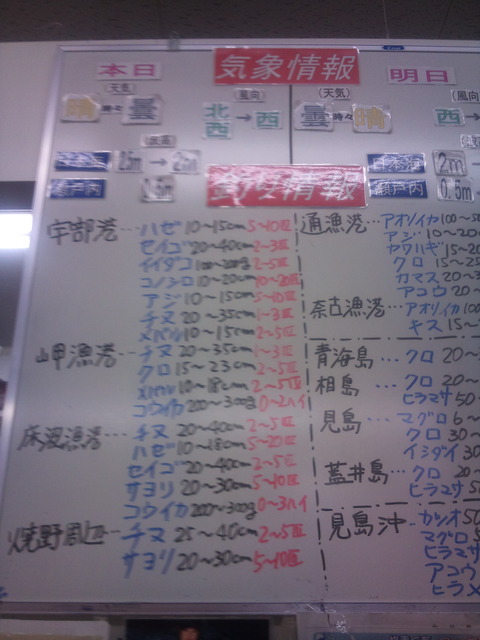 気象情報
本日
明日
(天気)
(風向)
(天気)
(風向)
晴 時々 曇
北西→西
曇 時々 晴
西→
2.5m→2m
2m
瀬戸内 0.5m
瀬戸内 0.5m
釣り情報
宇部港…ハゼ 10～15cm 5～10匹
セイゴ 20～40cm 2～3匹
イイダコ 100～200g 2～5匹
コノシロ 10～20cm 10～20匹
アジ 10～15cm 5～10匹
チヌ 20～35cm 1～3匹
メバル 10～15cm 2～5匹
岬漁港…チヌ 20～35cm 1～3匹
クロ 15～23cm 2～5匹
メバル 10～18cm 2～5匹
コウイカ 200～300g 0～2ハイ
床波漁港…チヌ 20～40cm 2～5匹
ハゼ 10～18cm 5～20匹
セイゴ 20～40cm 2～5匹
サヨリ 20～30cm 5～10匹
コウイカ 200～300g 0～3ハイ
焼野周辺…チヌ 25～40cm 2～5匹
サヨリ 20～30cm 5～10匹
通漁港…アオリイカ 100～
アジ 10～20
カワハギ 15～
クロ 15～
カマス 20～
アコウ 20
奈古漁港…アオリイカ 100
キス 15～
青海島…クロ 20～
相島…クロ 20～
ヒラマサ 50
見島…マグロ 6～
クロ 30～
イシダイ 30
蓋井島…クロ 20～
ヒラマサ
見島沖…カツオ
マグロ
ヒラマサ
アコウ
ヒラメ